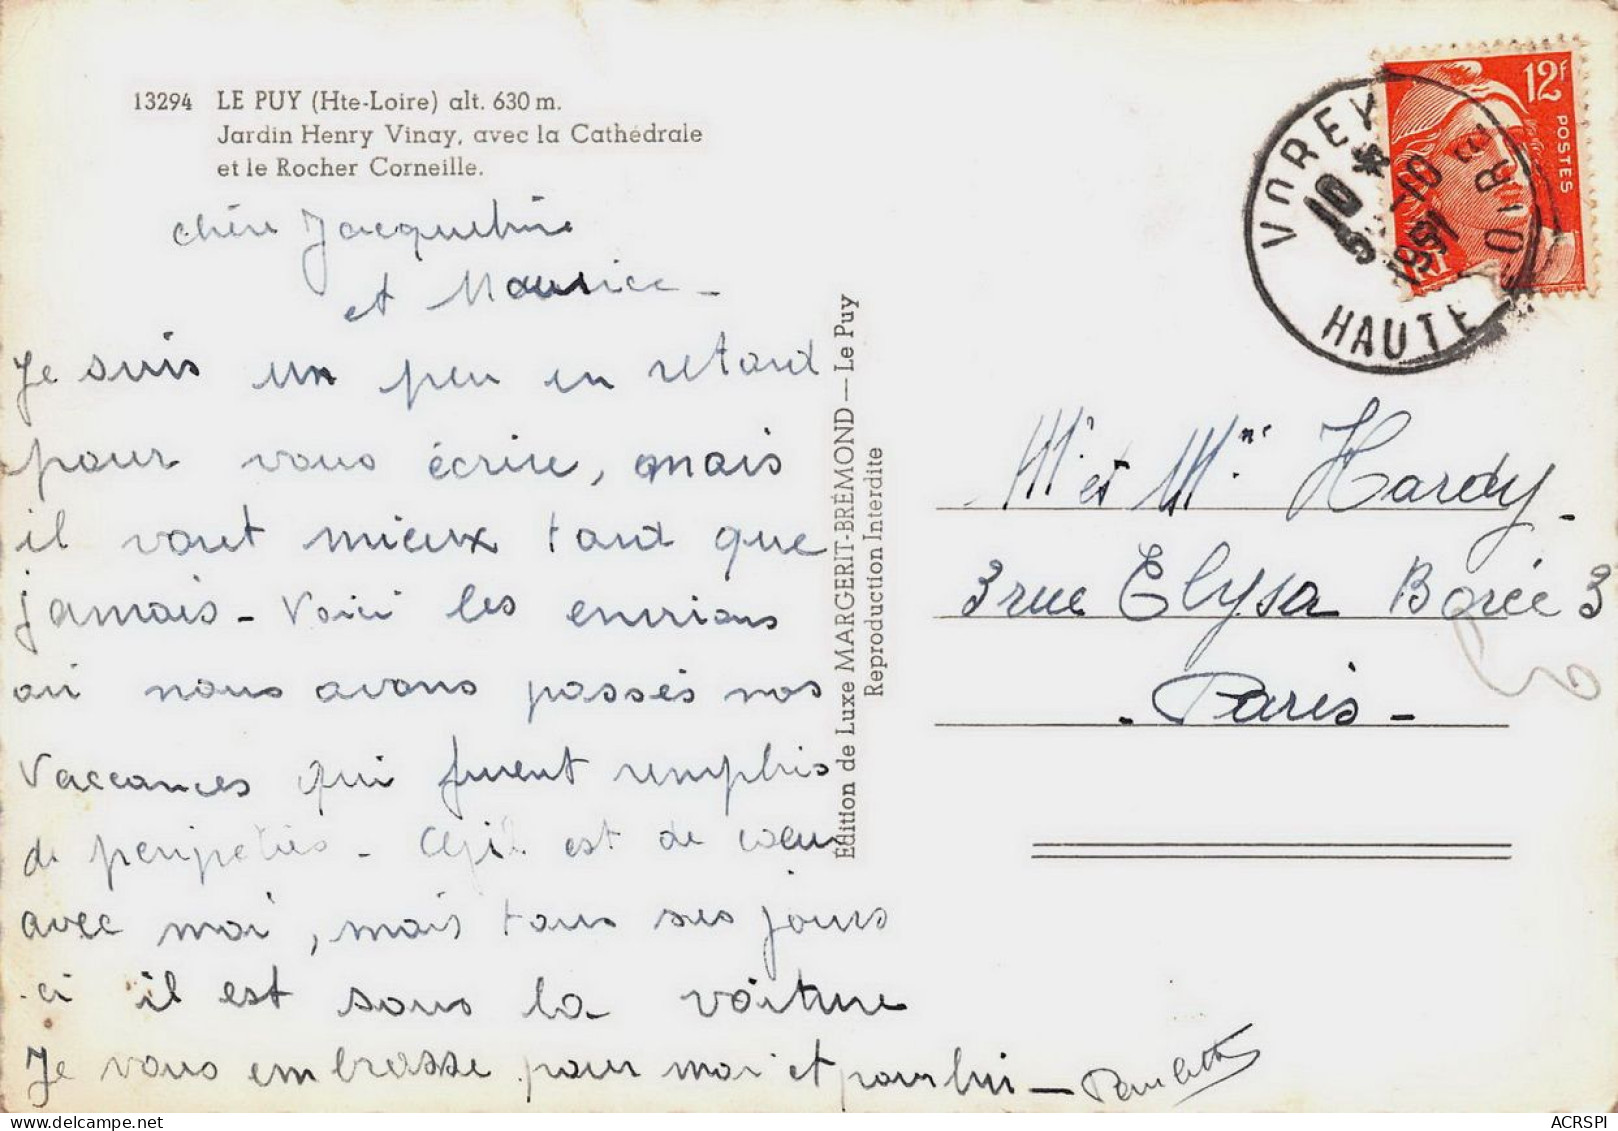 13294 LE PUY (Hte-Loire) alt. 630 m.
Jardin Henry Vinay, avec la Cathédrale
et le Rocher Corneille.
chère Jacqueline
et Maurice -
Je suis un peu en retard
pour vous écrire, mais
il vaut mieux tard que
jamais - Voici les environs
où nous avons passés nos
vaccances qui furent remplis
de peripeties - est de cœur
avec moi, mais tous ses jours
ci il est sous la voiture
Je vous embrasse pour moi et pour lui - Paulette
Édition de Luxe MARGERIT-BRÉMOND — Le Puy
Reproduction Interdite
12F
POSTES
RF
VOREY
HAUTE LOIRE
Mr et Mme Hardy -
3 rue Elysa Borée 3
- Paris -
ACRSPI